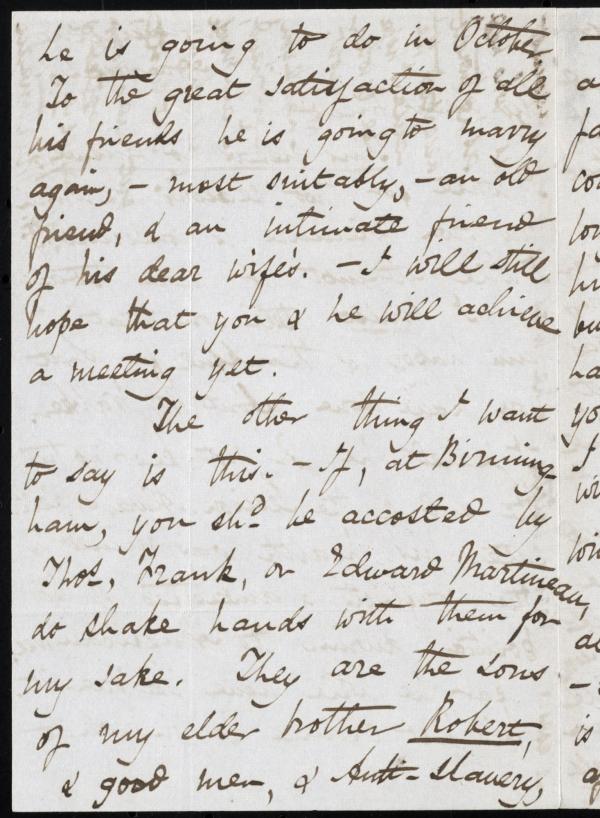 he is going to do in October
To the great satisfaction of all
his friends he is going to marry
again, – most suitably, – an old
friend, & an intimate friend
of his dear wife's. – I will still
hope that you & he will achieve
a meeting yet.
The other thing I want
to say is this. – If, at Birming-
ham, you shd. be accosted by
Thos., Frank, or Edward Martineau,
do shake hands with them for
my sake. They are the sons
of my elder brother Robert,
& good men, & Anti-slavery,